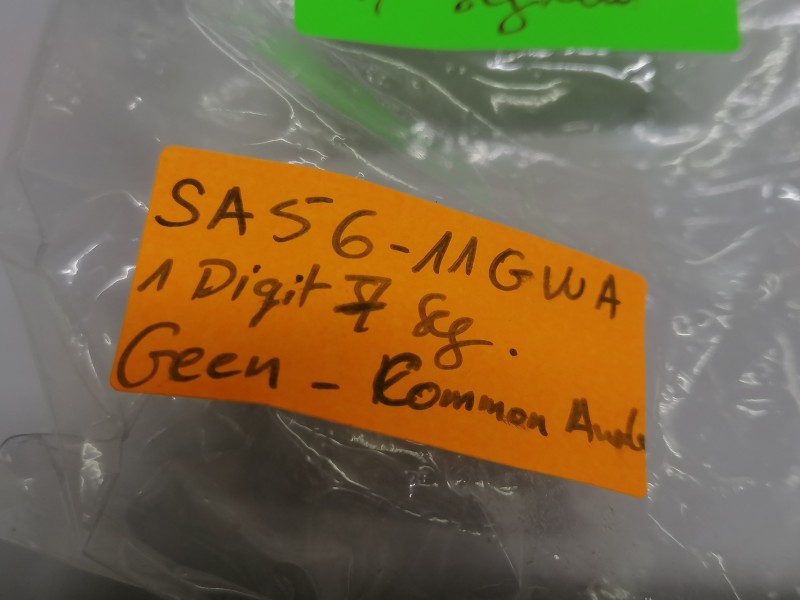 SA56-11GWA
1 Digit 7 Seg.
Geen - Common